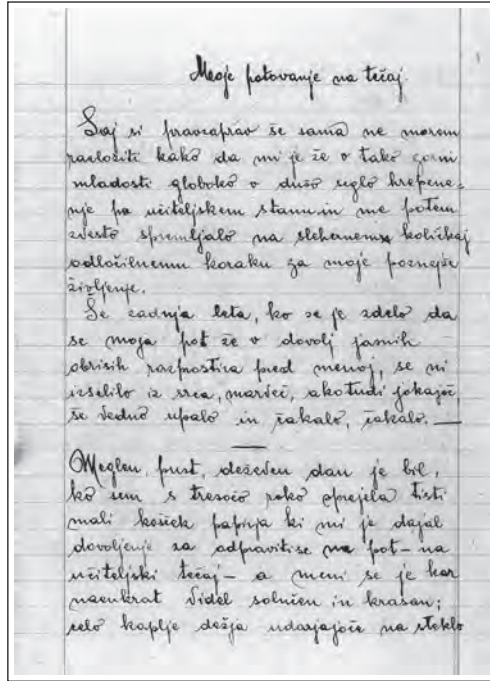 Moje potovanje na tečaj.
Saj si pravzaprav še sama ne morem
razložiti kako da mi je že v tako zorni
mladosti globoko v dušo seglo hrepene-
nje po učiteljskem stanu in me potem
zvesto spremljalo na slehernem količkaj
odločilnemu koraku za moje poznejše
življenje.
Še zadnja leta, ko se je zdelo da
se moja pot že v dovolj jasnih
obrisih razprostira pred menoj, se ni
izselilo iz srca, marveč, akotudi jokajoč
še vedno upalo in čakalo, čakalo. —
Meglen, pust, deževen dan je bil,
ko sem s tresočo roko sprejela tisti
mali košček papirja ki mi je dajal
dovoljenje za odpravitise na pot – na
učiteljski tečaj – a meni se je kar
naenkrat videl solnčen in krasan;
celo kaplje dežja udarjajoče na steklo